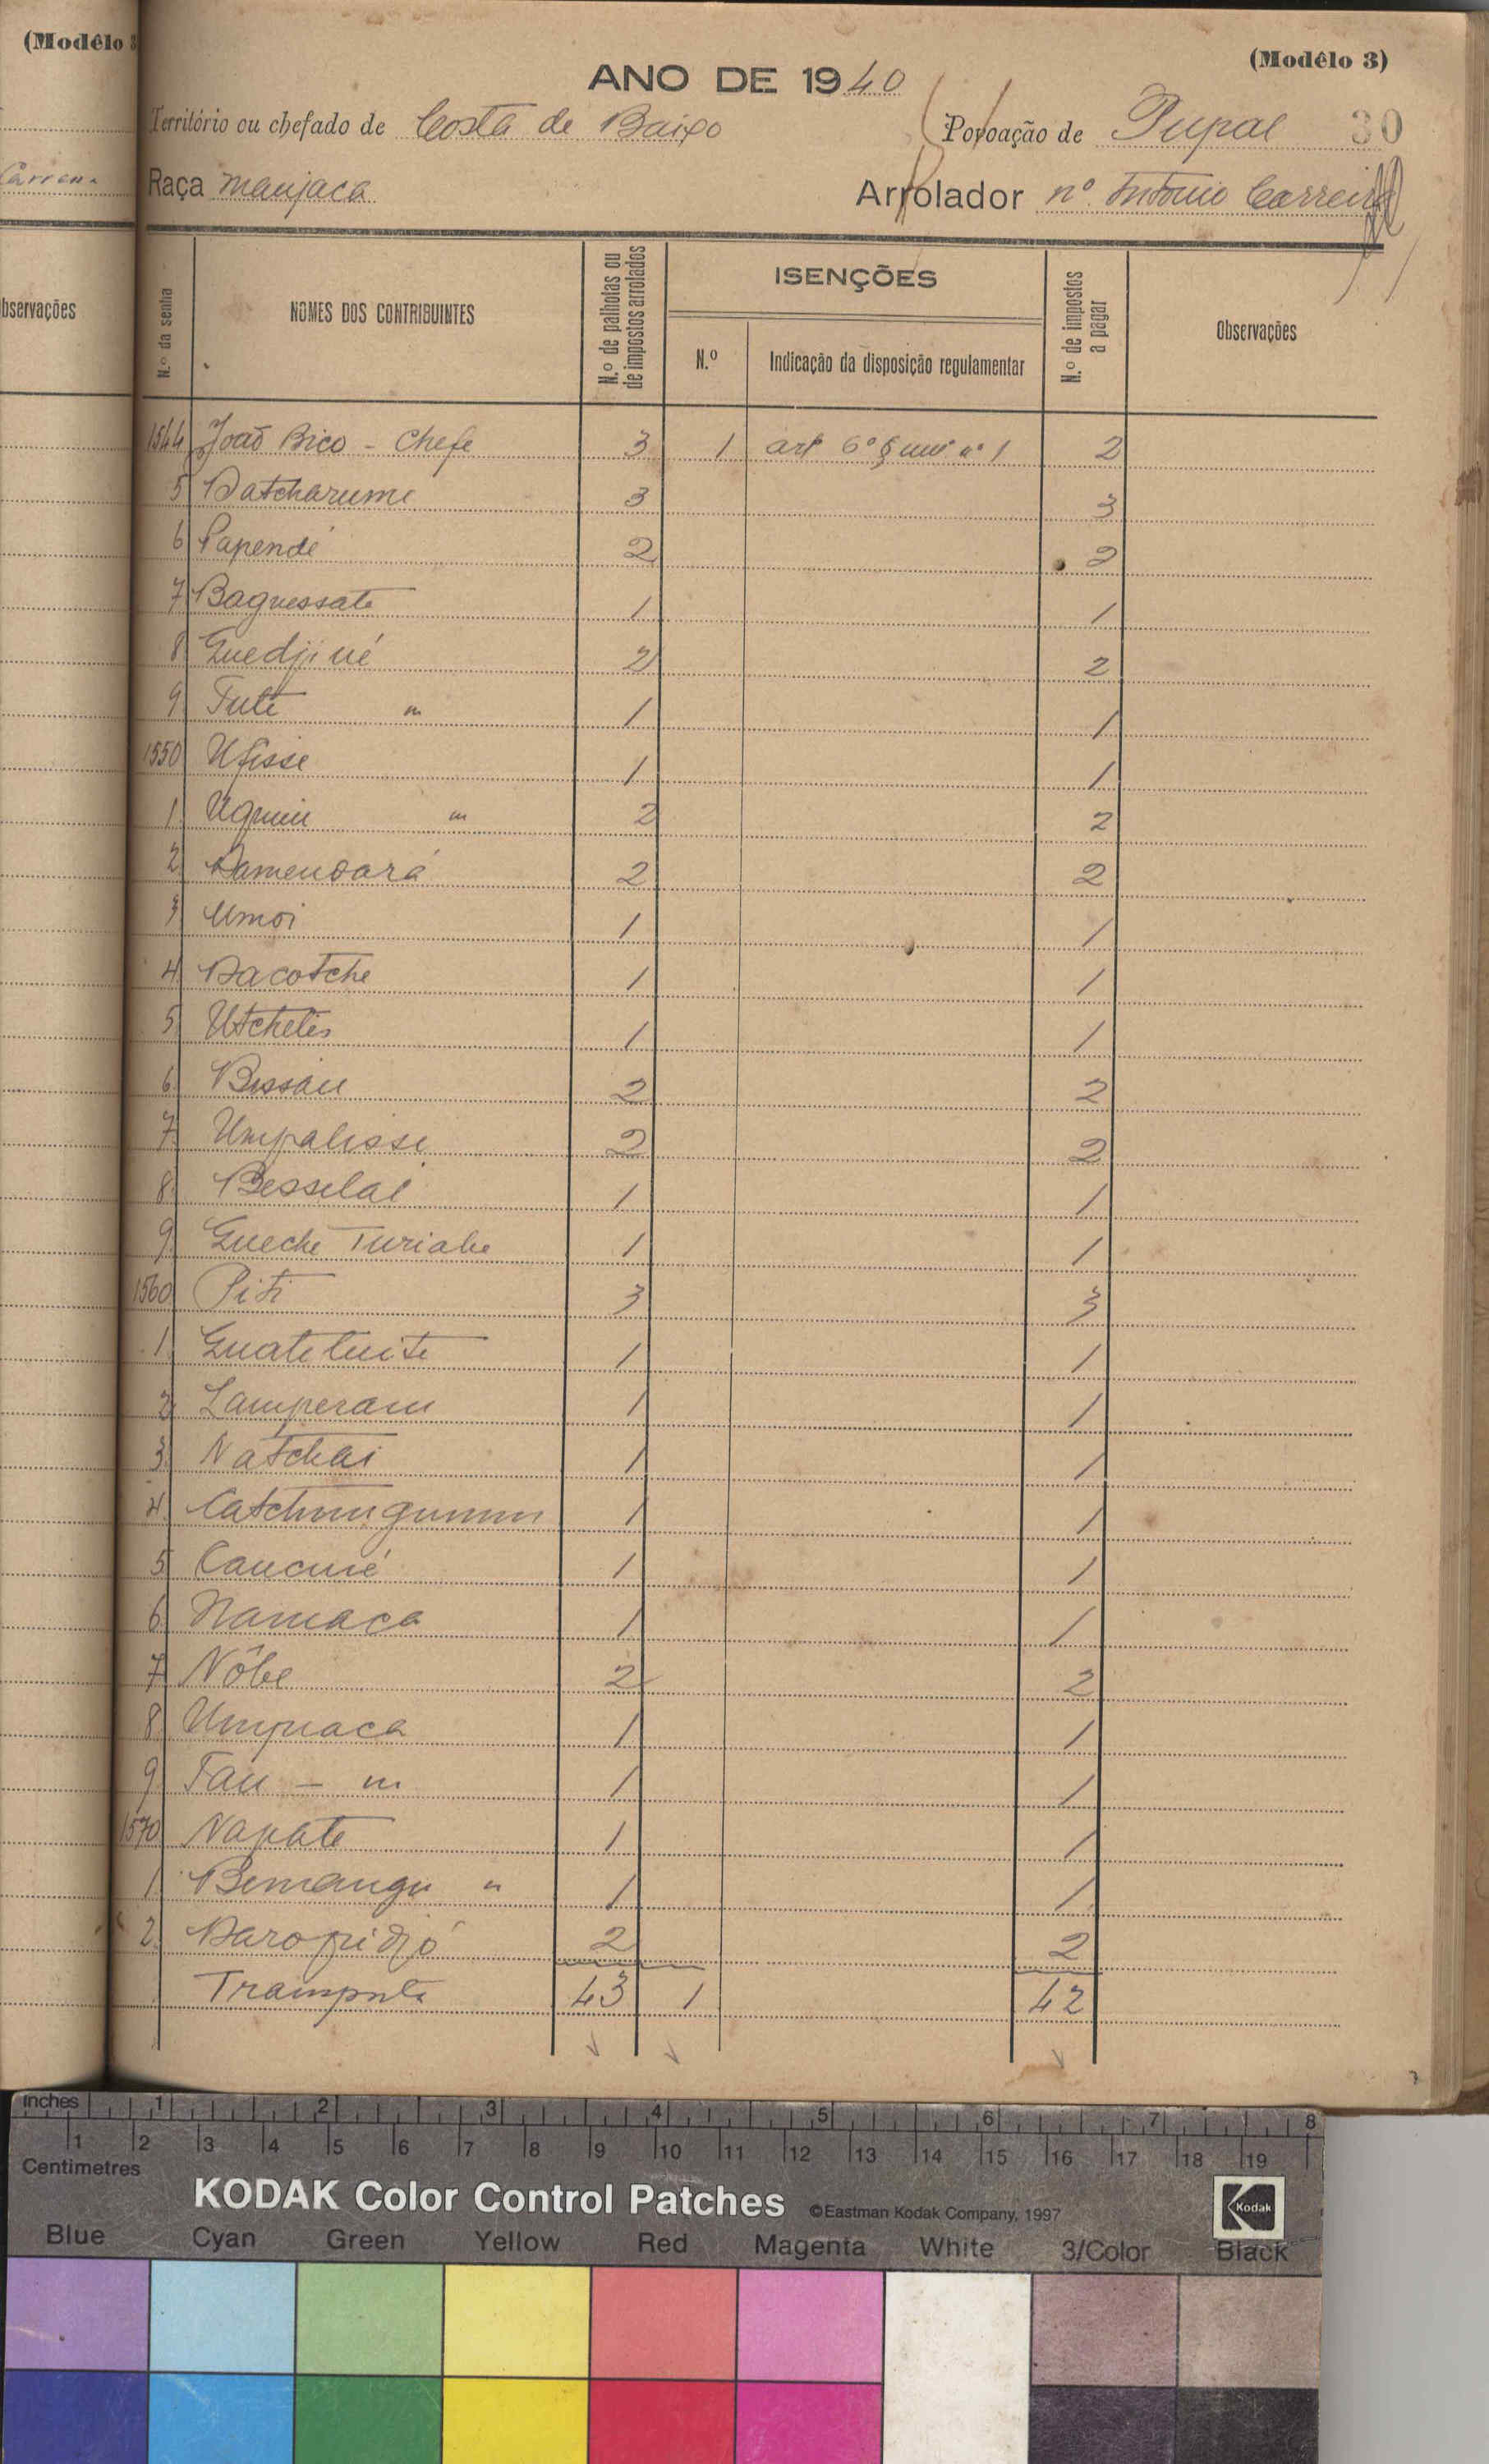 (Modêlo 3
(Modêlo 3)
ANO DE 1940
Território ou chefado de Costa de Baixo
Povoação de Pupal 30
Raça manjaca
Arrolador nº António Carreira
Observações
N.º da senha
NOMES DOS CONTRIBUINTES
N.º de palhotas ou de impostos arrolados
ISENÇÕES
N.º
Indicação da disposição regulamentar
N.º de impostos a pagar
Observações
1544 João Bico - Chefe 3 1 artº 6º § unº nº 1 2
5 Datcharume 3 3
6 Papendé 2 2
7 Baguessate 1 1
8 Guedjiné 2 2
9 Tute m 1 1
1550 Ufisse 1 1
1 m 2 2
2 2 2
3 Umoi 1 1
4 Dacotche 1 1
5 Utchetes 1 1
6 Bissau 2 2
7 Umpalisse 2 2
8 Besselal 1 1
9 Gueche Turiabe 1 1
1560 Piti 3 3
1 1 1
2 Lamperam 1 1
3 Natchai 1 1
4 1 1
5 1 1
6 Namaca 1 1
7 Nôbe 2 2
8 Umpuaca 1 1
9 Tau - m 1 1
1570 Napate 1 1
1 Bemangu m 1 1
2 2 2
Transporte 43 1 42
inches 1 2 3 4 5 6 7 8
Centimetres 1 2 3 4 5 6 7 8 9 10 11 12 13 14 15 16 17 18 19
KODAK Color Control Patches ©Eastman Kodak Company, 1997 Kodak
Blue Cyan Green Yellow Red Magenta White 3/Color Black